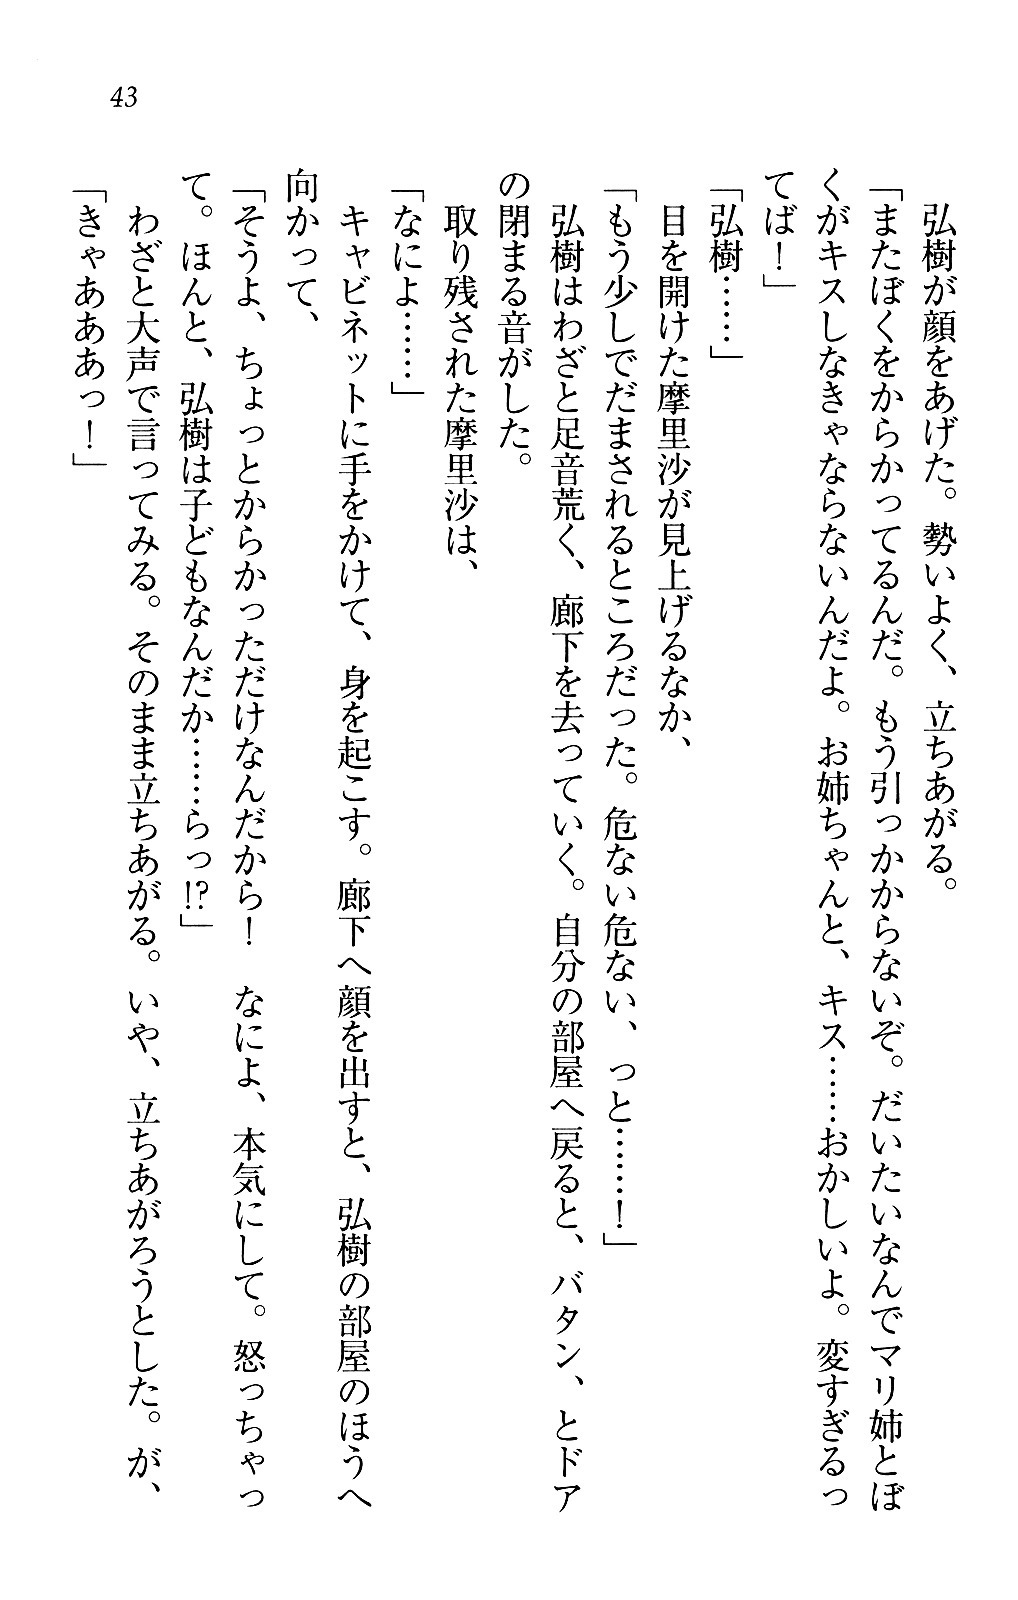 43
弘樹が顔をあげた。勢いよく、立ちあがる。
「またぼくをからかってるんだ。もう引っかからないぞ。だいたいなんでマリ姉とぼ
くがキスしなきゃならないんだよ。お姉ちゃんと、キス……おかしいよ。変すぎるっ
てば！」
「弘樹……」
目を開けた摩里沙が見上げるなか、
「もう少しでだまされるところだった。危ない危ない、っと……！」
弘樹はわざと足音荒く、廊下を去っていく。自分の部屋へ戻ると、バタン、とドア
の閉まる音がした。
取り残された摩里沙は、
「なによ……」
キャビネットに手をかけて、身を起こす。廊下へ顔を出すと、弘樹の部屋のほうへ
向かって、
「そうよ、ちょっとからかっただけなんだから！　なによ、本気にして。怒っちゃっ
て。ほんと、弘樹は子どもなんだか……らっ!?」
わざと大声で言ってみる。そのまま立ちあがる。いや、立ちあがろうとした。が、
「きゃあああっ！」